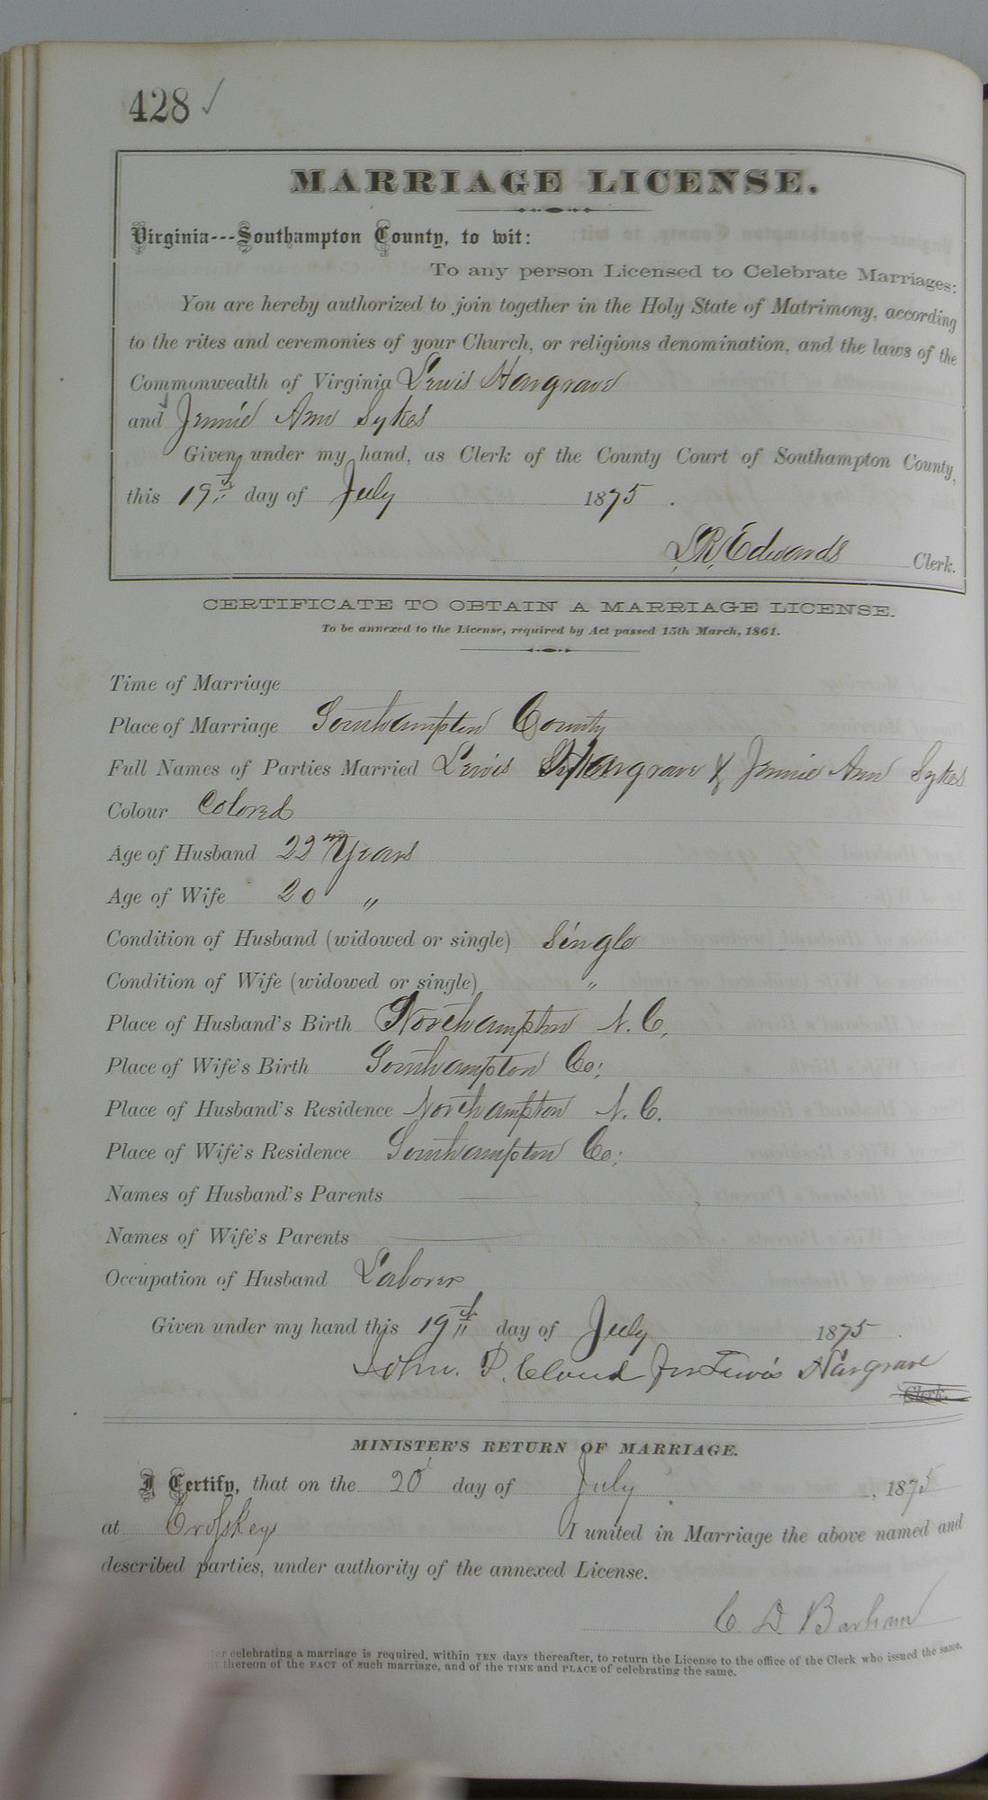 428 ✓
MARRIAGE LICENSE.
Virginia---Southampton County, to wit:
To any person Licensed to Celebrate Marriages:
You are hereby authorized to join together in the Holy State of Matrimony, according
to the rites and ceremonies of your Church, or religious denomination, and the laws of the
Commonwealth of Virginia Lewis Hargrave
and Jennie Ann Sykes
Given under my hand, as Clerk of the County Court of Southampton County,
this 19th day of July 1875.
L. R. Edwards Clerk.
CERTIFICATE TO OBTAIN A MARRIAGE LICENSE.
To be annexed to the License, required by Act passed 15th March, 1861.
Time of Marriage
Place of Marriage Southampton County
Full Names of Parties Married Lewis Hargrave & Jennie Ann Sykes
Colour Colored
Age of Husband 22 Years
Age of Wife 20 "
Condition of Husband (widowed or single) Single
Condition of Wife (widowed or single) "
Place of Husband's Birth Northampton N. C.
Place of Wife's Birth Southampton Co:
Place of Husband's Residence Northampton N. C.
Place of Wife's Residence Southampton Co:
Names of Husband's Parents
Names of Wife's Parents
Occupation of Husband Laborer
Given under my hand this 19th day of July 1875
John. P. Cloud for Lewis Hargrave
Clerk.
MINISTER'S RETURN OF MARRIAGE.
I Certify, that on the 20 day of July, 1875
at Crosskeys I united in Marriage the above named and
described parties, under authority of the annexed License.
C. D. Barham
celebrating a marriage is required, within TEN days thereafter, to return the License to the office of the Clerk who issued the same,
thereon of the FACT of such marriage, and of the TIME and PLACE of celebrating the same.